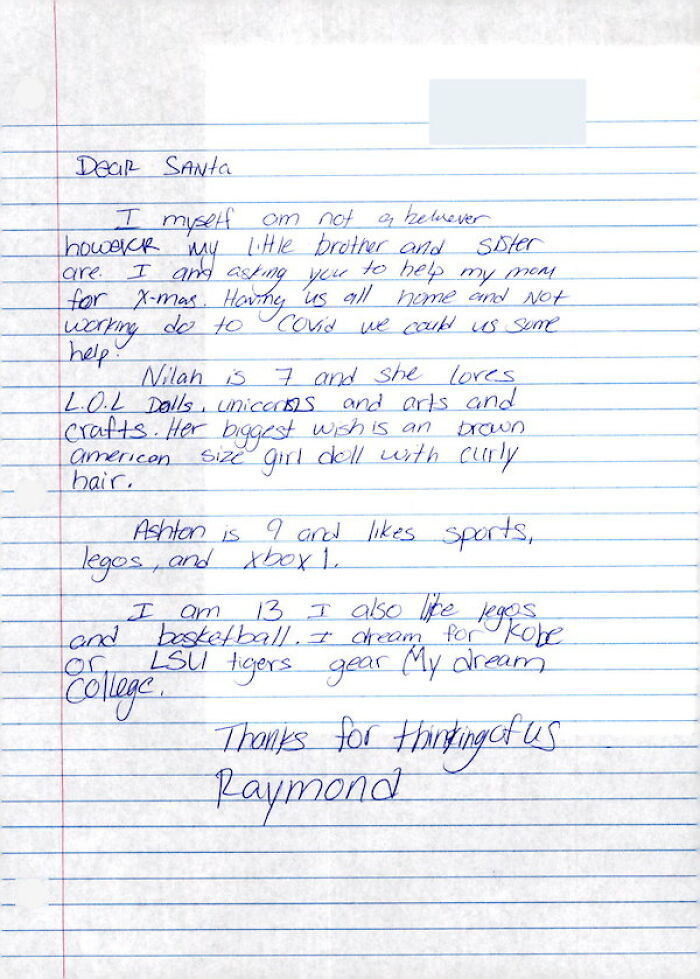 Dear Santa
I myself am not a believer
however my little brother and sister
are. I am asking you to help my mom
for X-mas. Having us all home and Not
working do to Covid we could us some
help.
Nilah is 7 and she loves
L.O.L Dolls, unicorns and arts and
crafts. Her biggest wish is an brown
american size girl doll with curly
hair.
Ashton is 9 and likes sports,
legos, and xbox 1.
I am 13 I also like legos
and basketball. I dream for Kobe
or LSU tigers gear My dream
College.
Thanks for thinking of us
Raymond